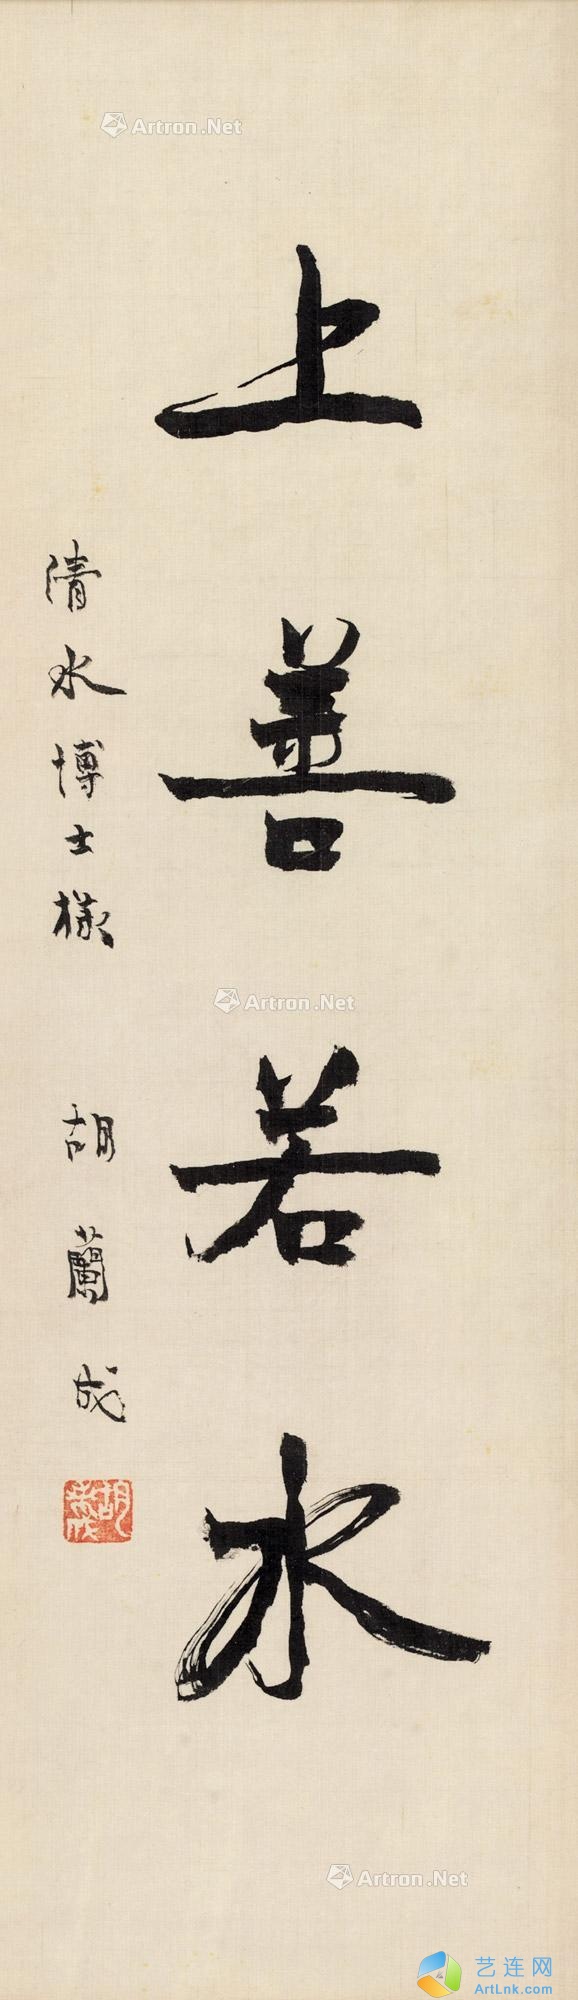 上善若水
清水博士様 胡蘭成
Artron.Net
Artron.Net
Artron.Net
艺连网
ArtLnk.com